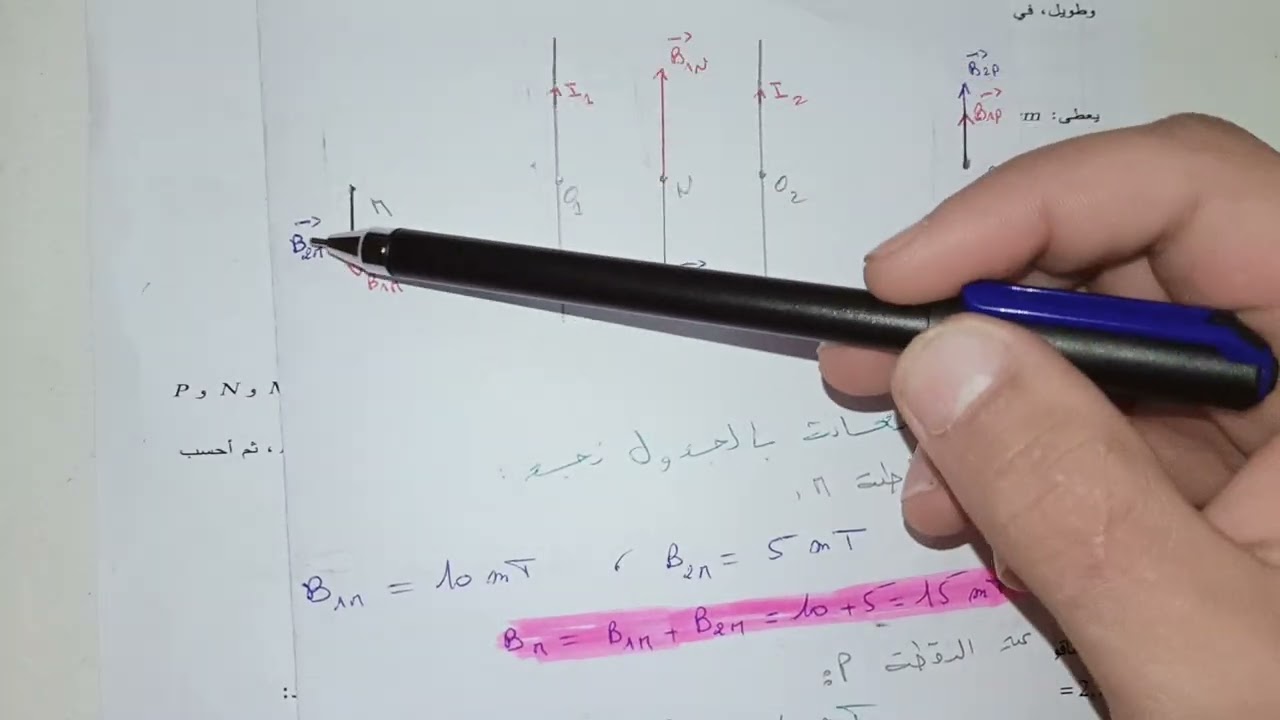 وطويل، في
B₂P
يعطى: m
B₁P
B₁N
I₁
I₂
O₁
N
O₂
M
B₂M
B₁M
P و N و
، ثم أحسب
بالجدول نجد :
M
B₁M = 10 mT ، B₂M = 5 mT
B_M = B₁M + B₂M = 10 + 5 = 15 m
النقطة P :
= 2.